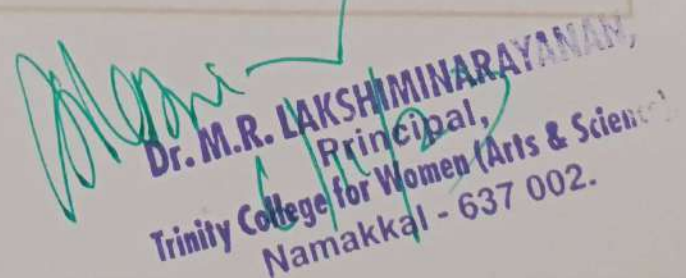 Dr. M.R. LAKSHIMINARAYANAM,
Principal,
Trinity College for Women (Arts & Science)
Namakkal - 637 002.